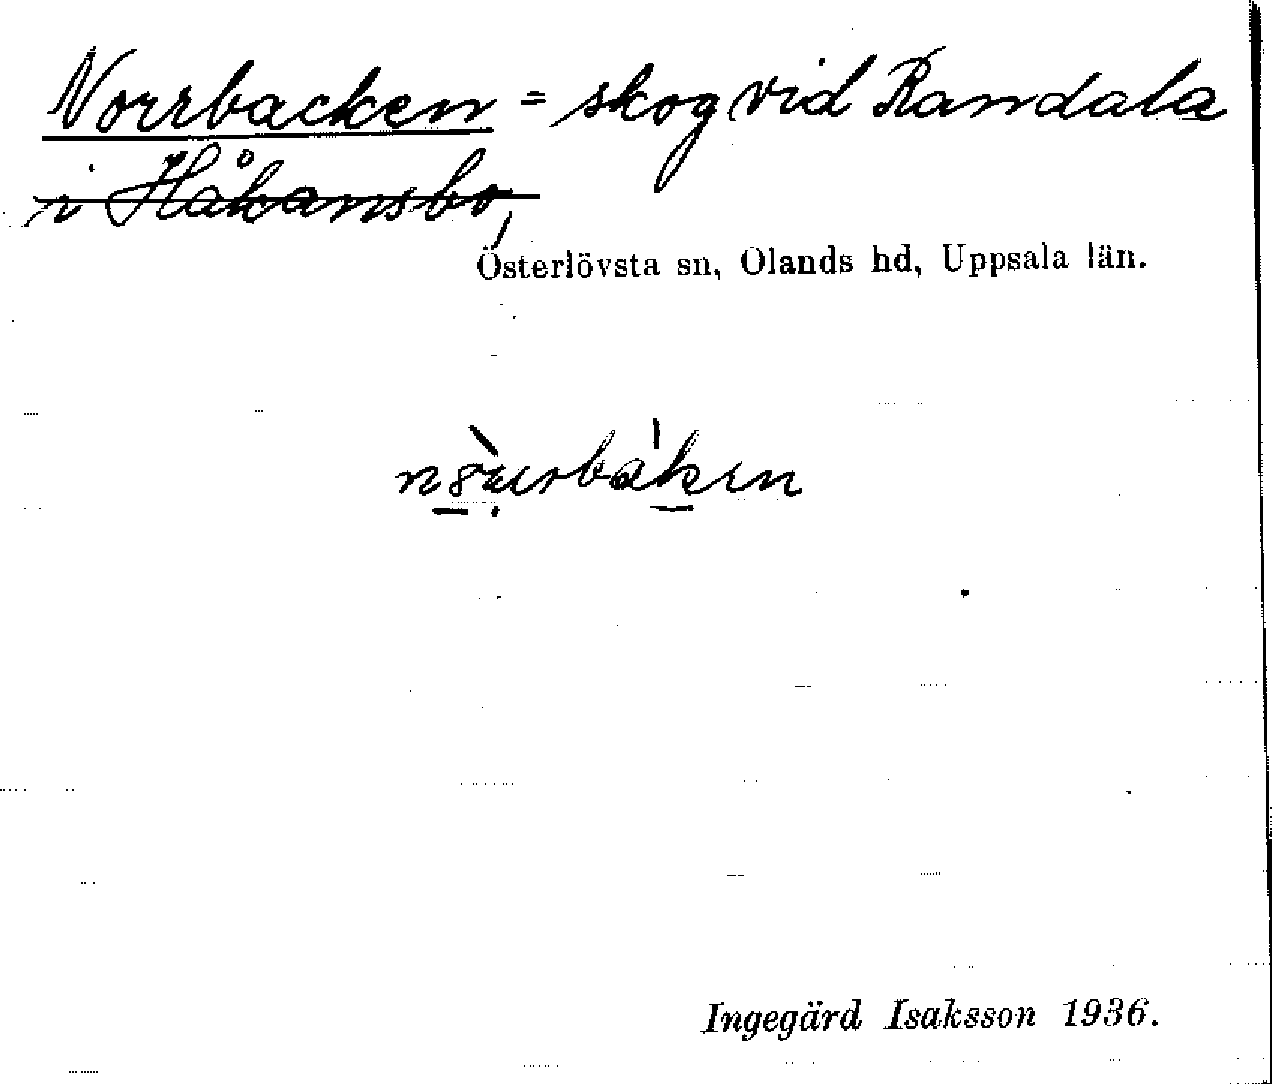 Norrbacken = skog vid Randala
i Håkansbo,
Österlövsta sn, Olands hd, Uppsala län.
Ingegärd Isaksson 1936.